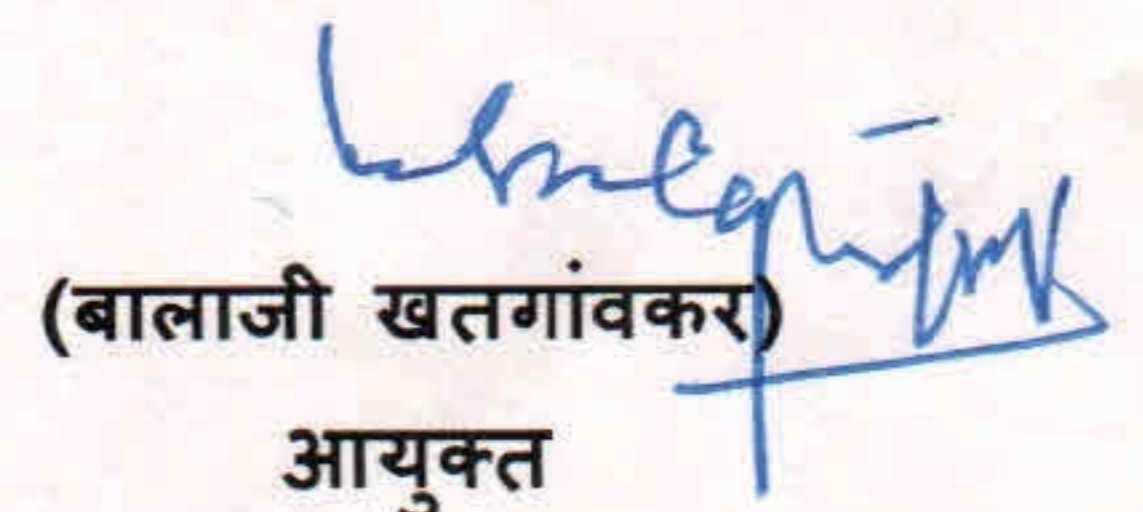 (बालाजी खतगांवकर)
आयुक्त